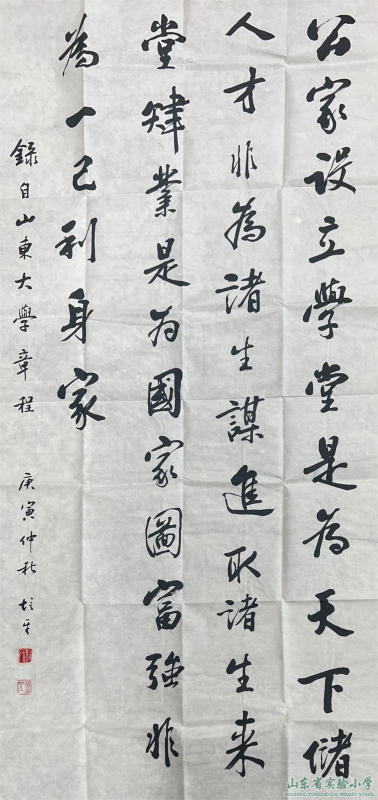 公家设立學堂是為天下儲
人才非為諸生謀進取諸生来
堂肄業是为國家圖富強非
為一己利身家
錄自山東大學章程 庚寅仲秋
山东省实验小学
SHANDONG EXPERIMENTAL PRIMARY SCHOOL